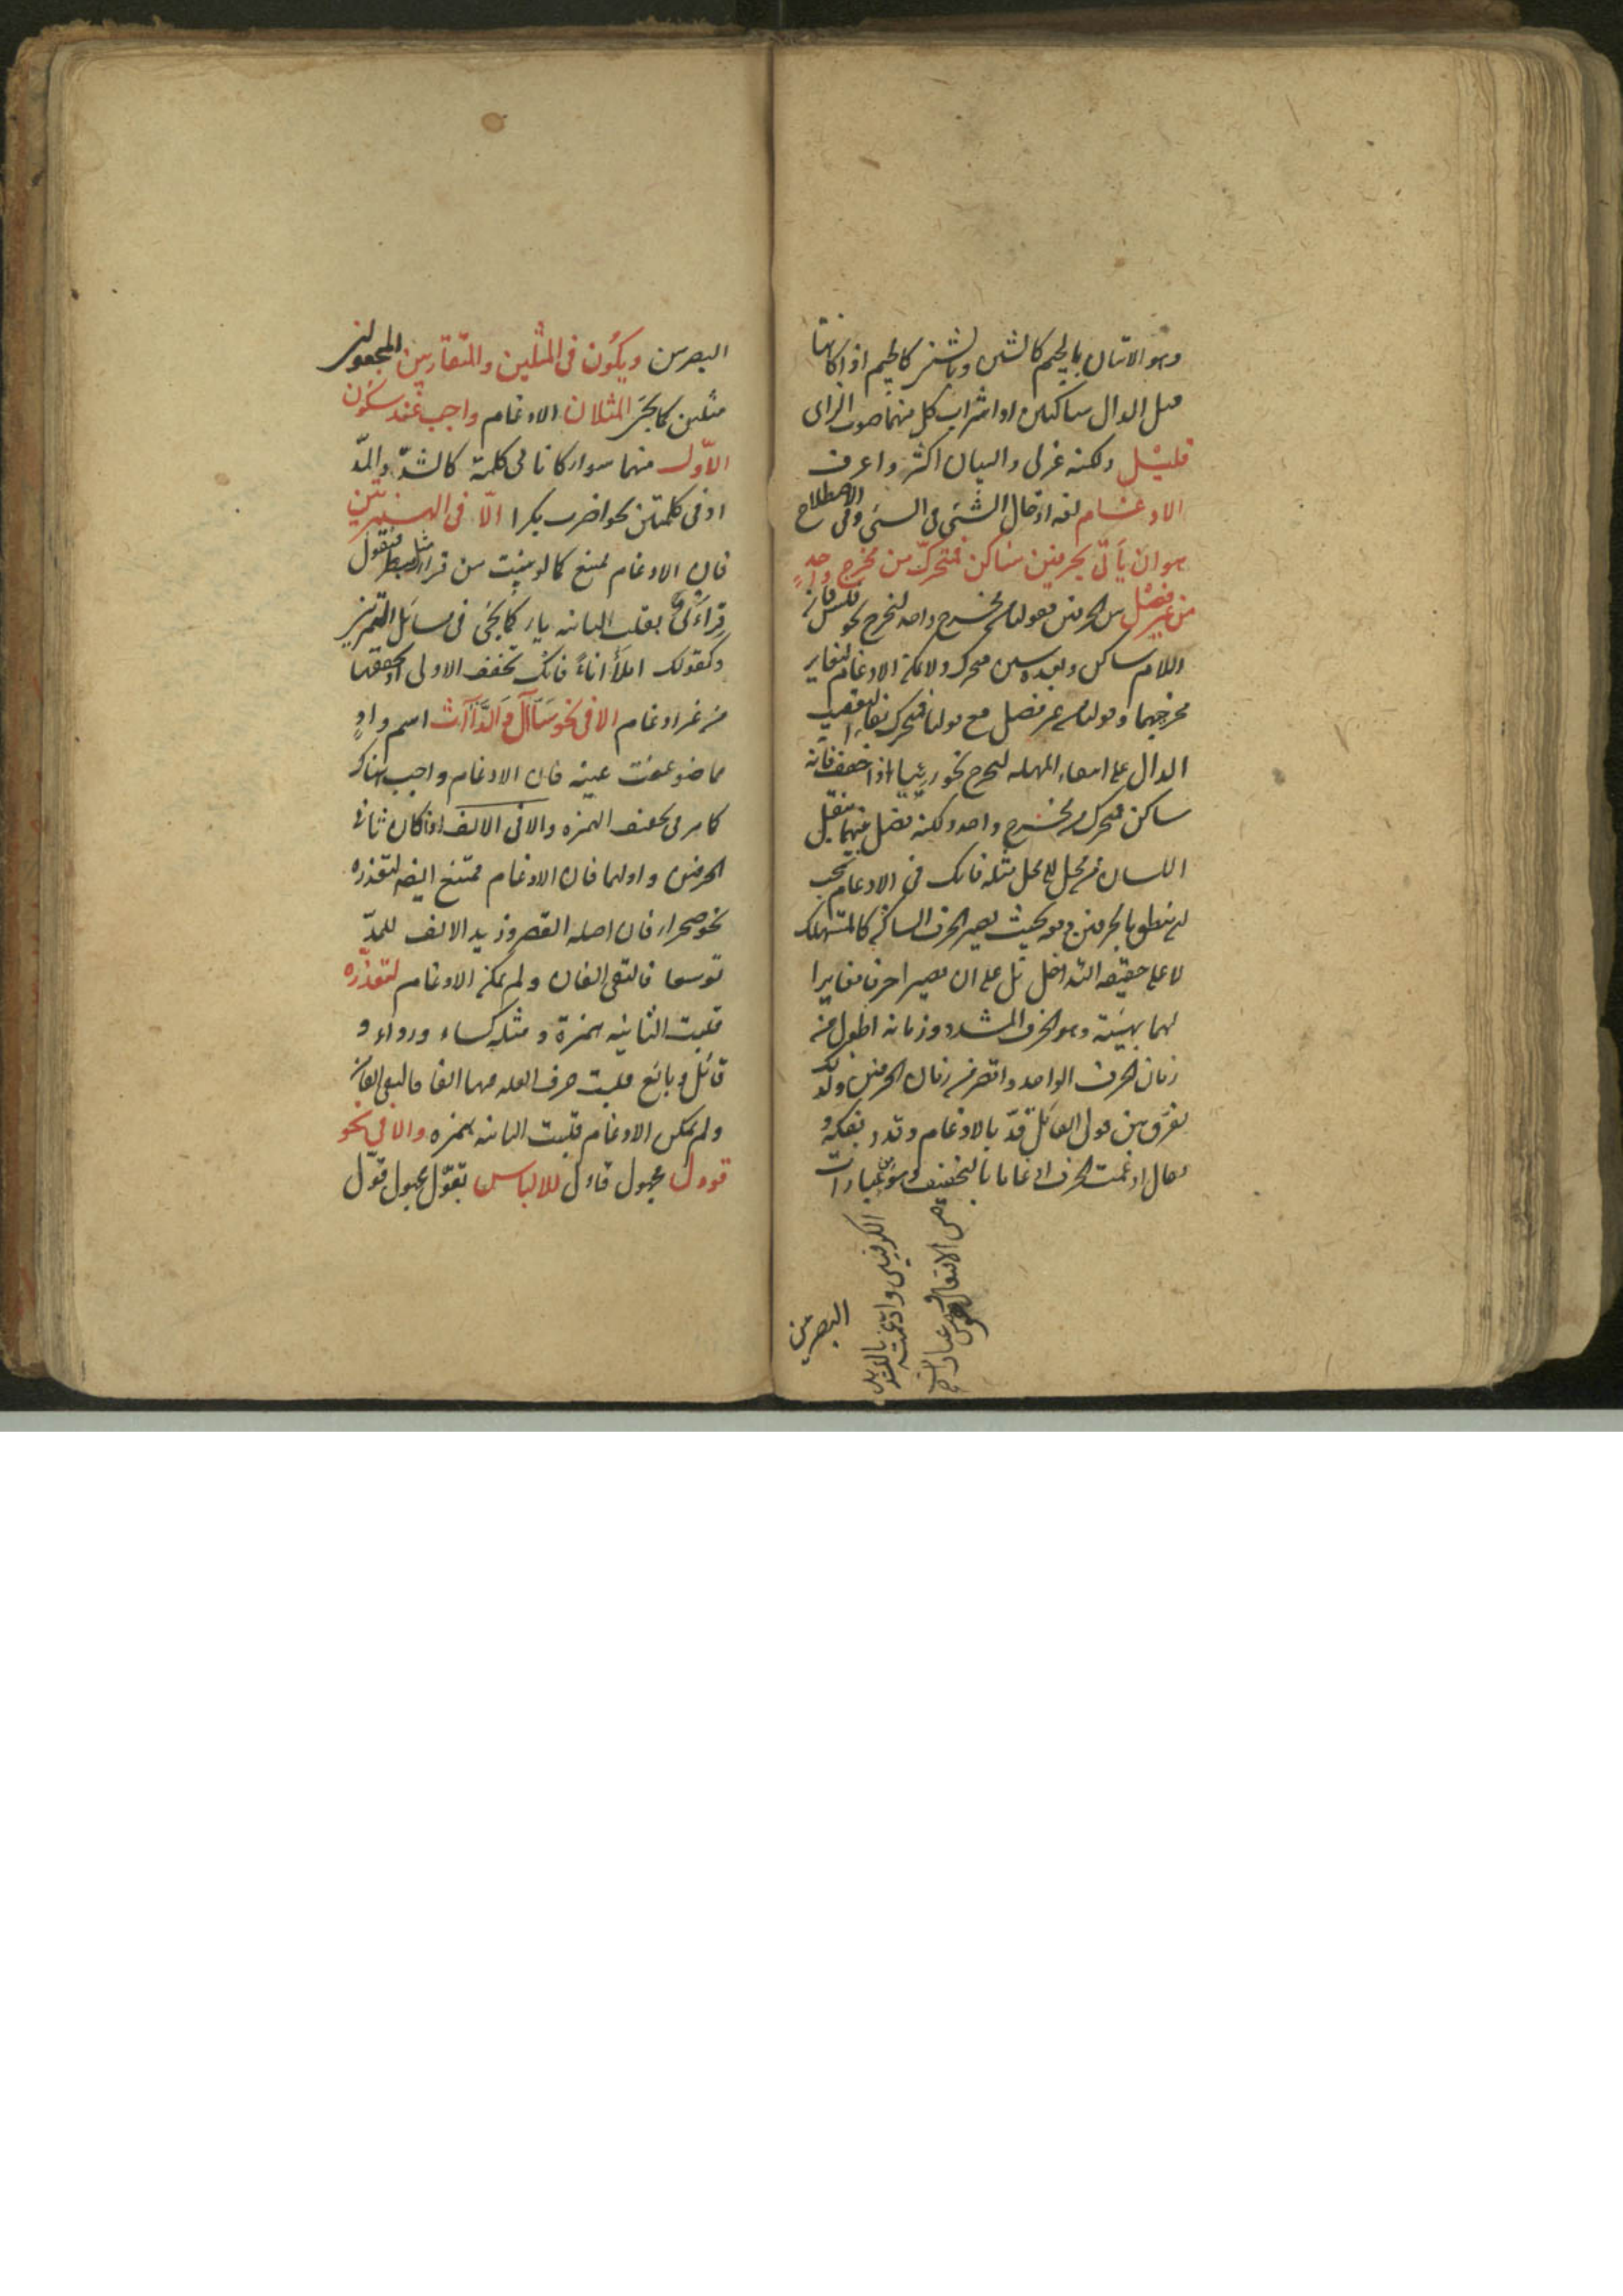 وهو الاتيان بالجيم كالشين وبالشين كالجيم اذا كانتا
قبل الدال ساكنين او اشراب كل منهما صوت الزاى
قليل ولكنه عربى والبيان اكثر واعرف
الادغام لغة ادخال الشئ فى الشئ وفى الاصطلاح
هو ان يأتى بحرفين ساكن فمتحرك من مخرج واحد
من غير فصل بين الحرفين فقولنا من مخرج واحد ليخرج نحو فلس فان
اللام ساكن وبعده سين متحرك ولا يمكن الادغام لتغاير
مخرجيهما وقولنا من غير فصل مع قولنا فمتحرك بفاء التعقيب
الدال على انتفاء المهملة ليخرج نحو رييا اذا خفف فانه
ساكن فمتحرك من مخرج واحد ولكنه فصل بينهما بنقل
اللسان من محل الى محل مثله فانك فى الادغام يجب
ان ينطق بالحرفين دفعة بحيث يصير الحرف الساكن كالمستهلك
لا على حقيقة التداخل بل على ان يصيرا حرفا مغايرا
لهما بهيئة وهو الحرف المشدد وزمانه اطول من
زمان الحرف الواحد واقصر من زمان الحرفين ولذلك
يفرق بين قول القائل قد بالادغام وقدد بفكه و
يقال ادغمت الحرف ادغاما بالتخفيف وهو من عبارات
الكوفيين وادغمته بالتشديد
من الافتعال وهو من عبارات
البصريين
البصريين ويكون فى المثلين والمتقاربين المجعولين
مثلين كما يجئ المثلان الادغام واجب عند سكون
الاول منهما سواء كانا فى كلمة كالشد والمد
او فى كلمتين نحو اضرب بكرا الا فى الهمزتين
فان الادغام ممتنع كما لو بنيت من قرأ مثل سبطر فتقول
قرأى بقلب الثانية ياء كما يجئ فى مسائل التمرين
وكقولك املأ اناء فانك تخفف الاولى او تحققها
من غير ادغام الا فى نحو سأال والدأاث اسم واد
مما ضوعفت عينه فان الادغام واجب هناك
كما مر فى تخفيف الهمزة والا فى الالف اذا كان ثانى
الحرفين واولهما فان الادغام ممتنع ايضا لتعذره
نحو صحراء فان اصله القصر وزيد الالف للمد
توسعا فالتقى الفان ولم يمكن الادغام لتعذره
قلبت الثانية همزة ومثله كساء ورداء و
قائل وبائع قلبت حرف العلة فيها الفا فالتقى الفان
ولم يمكن الادغام قلبت الثانية همزة والا فى نحو
قوول مجهول قاول للالباس بقول مجهول قول